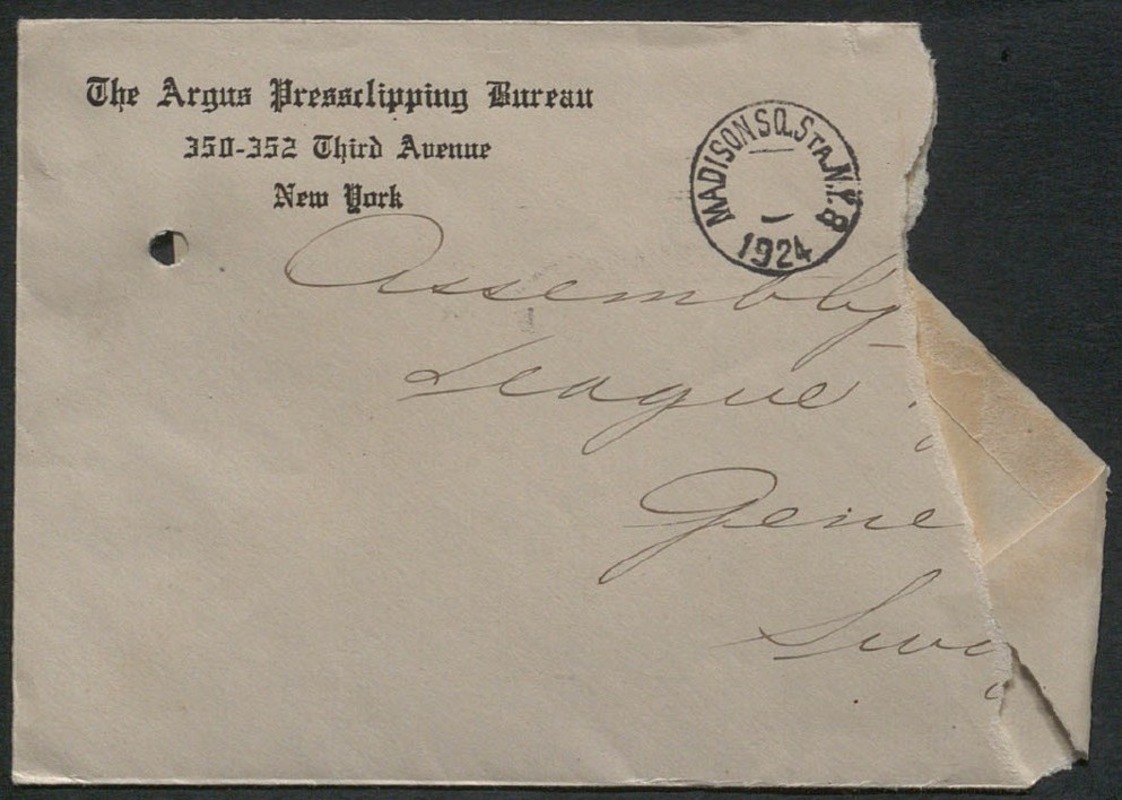 The Argus Pressclipping Bureau
350-352 Third Avenue
New York
MADISON SQ. STA. N.Y. 8
1924
Assembly
League
Gene